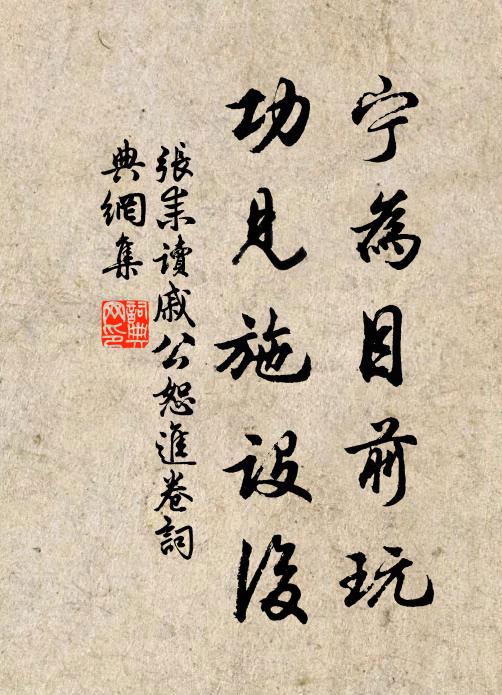 宁為目前玩
功見施設後
張耒讀戚公恕進卷詞
典網集
詞典
网印